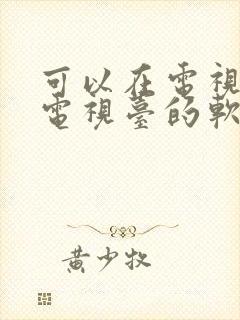 可以在電視
電視臺的軟
黃少牧